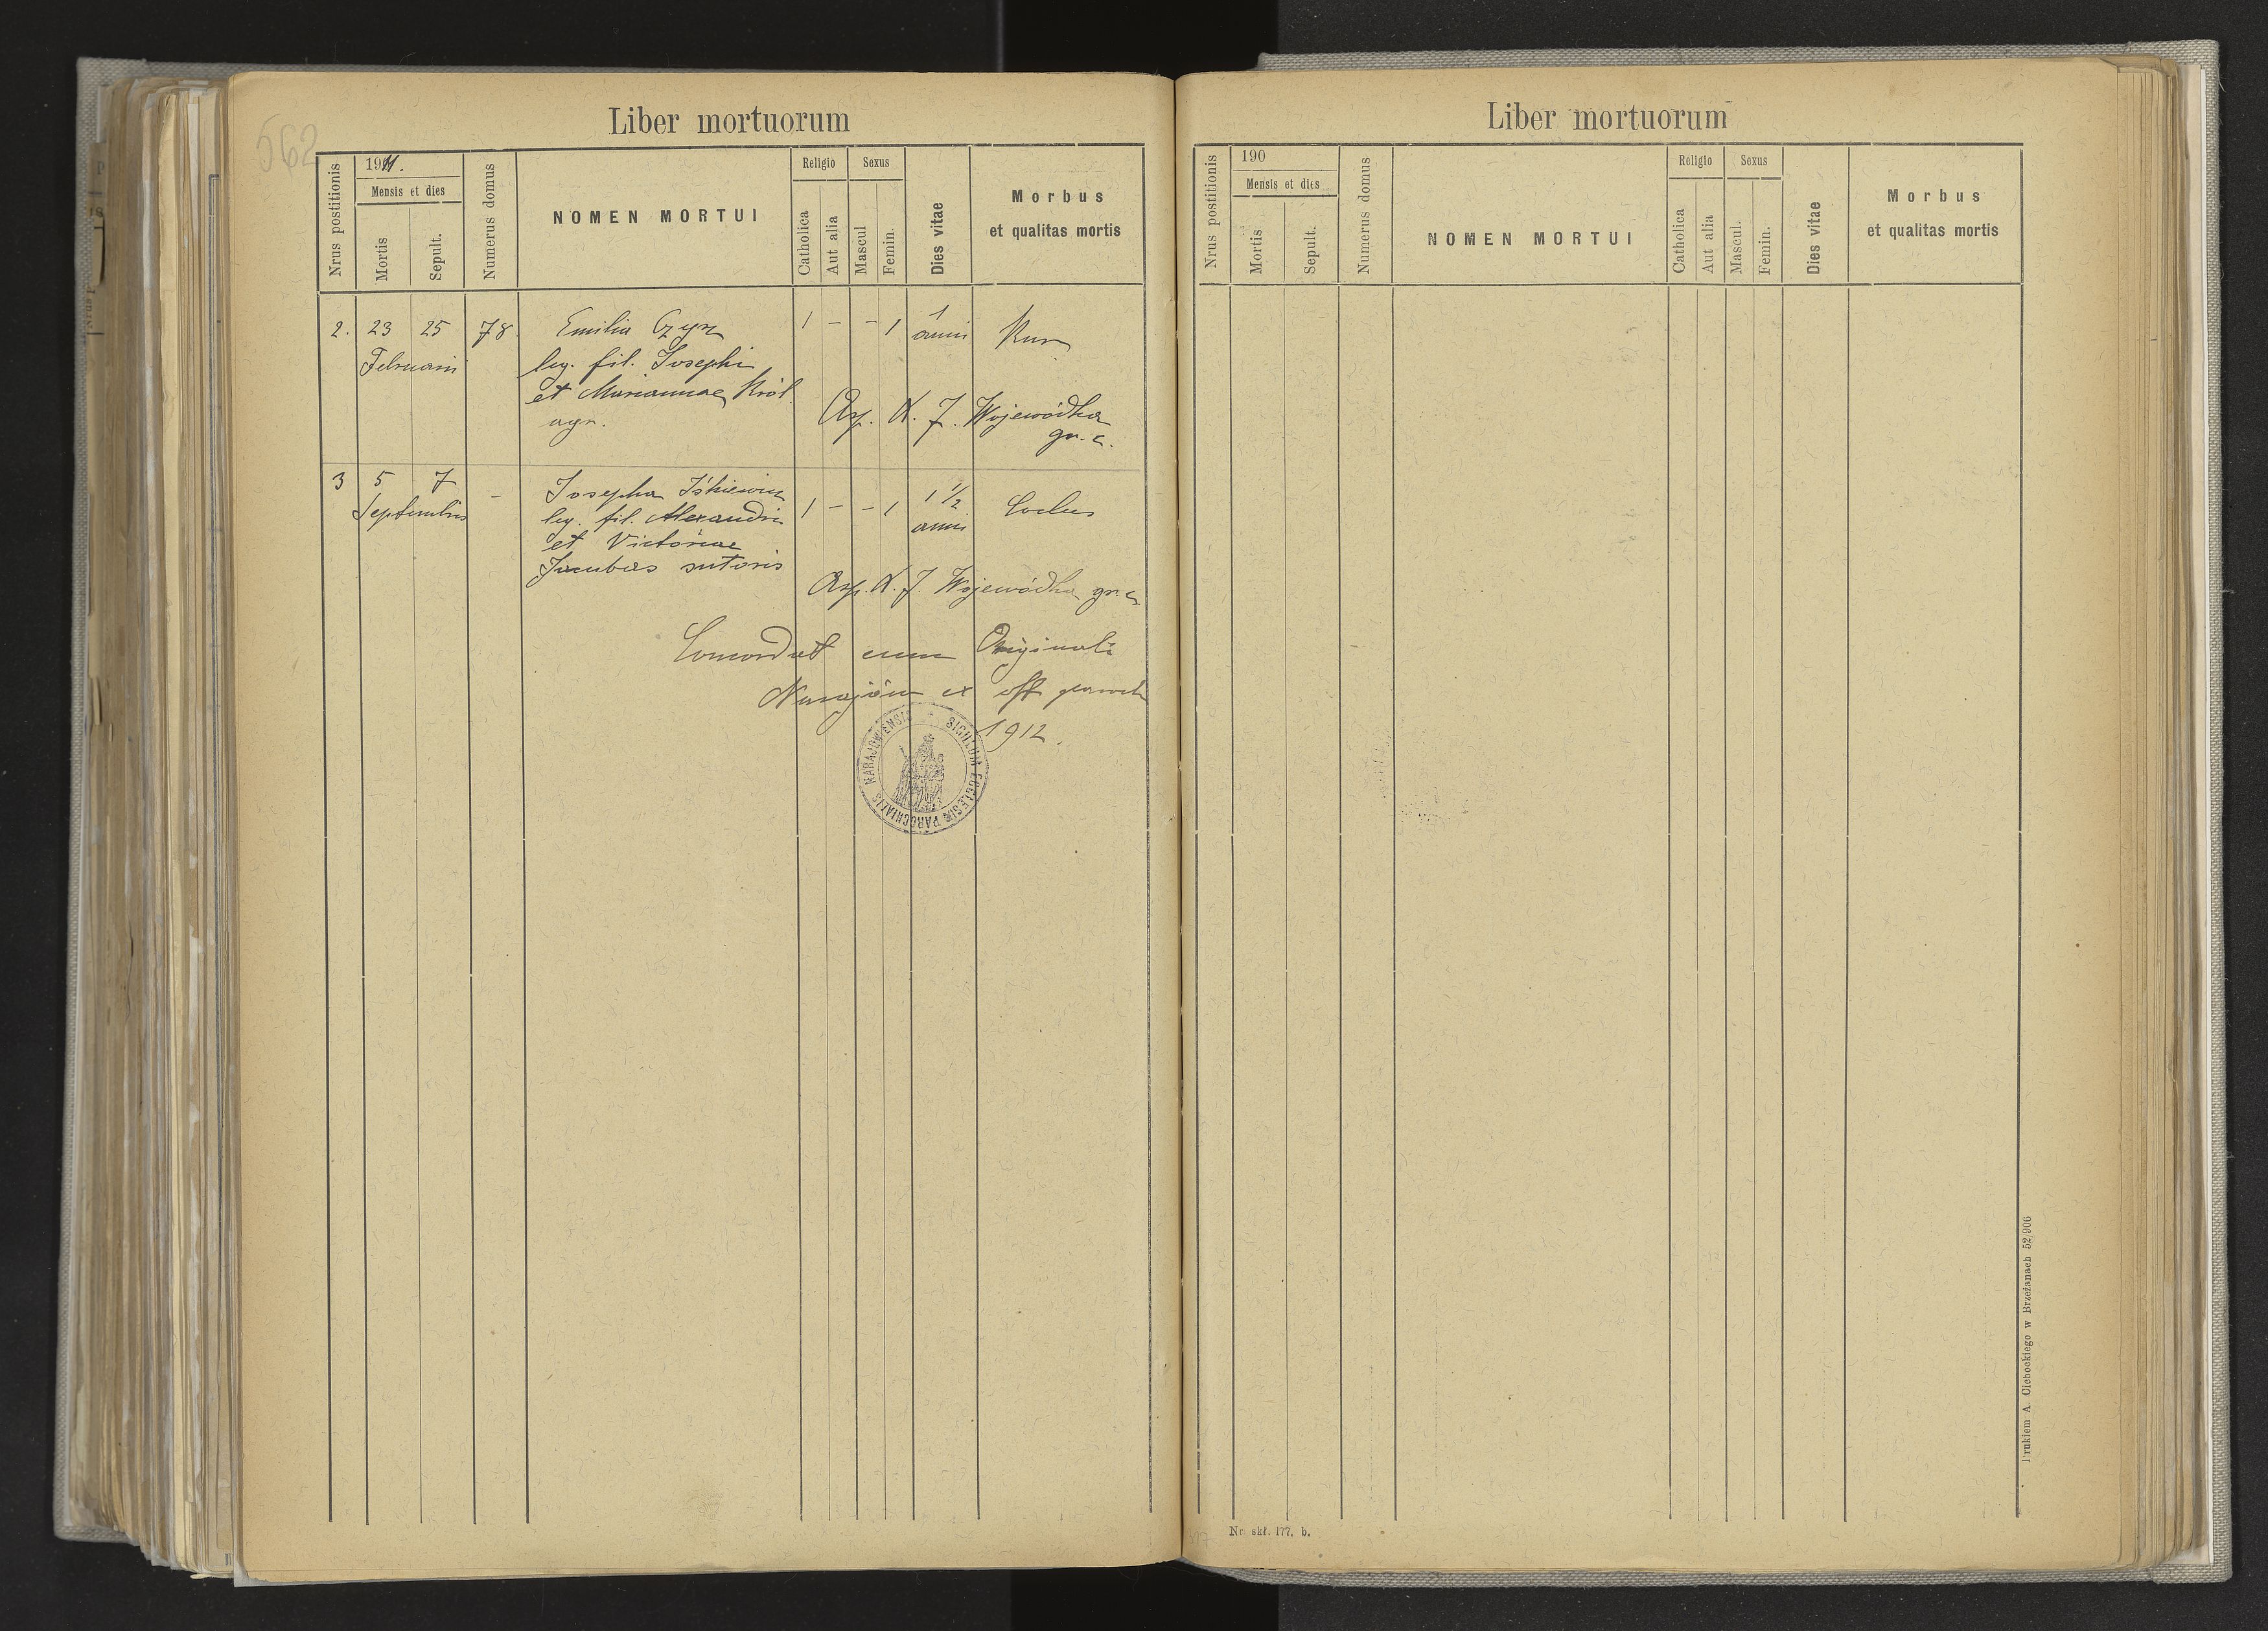 562
Liber mortuorum
Nrus postitionis
1911.
Mensis et dies
Mortis
Sepult.
Numerus domus
NOMEN MORTUI
Religio
Catholica
Aut alia
Sexus
Mascul
Femin.
Dies vitae
Morbus
et qualitas mortis
2. 23 25 78. Emilia Czyrz 1 - - 1 1 anni
Februarii leg. fil. Josephi
et Mariannae Król.
agr.
Asp. X. J. Wojewódka
gr. c.
3 5 7 - Josepha Iśkiewicz 1 - - 1 1 1/2 anni
Septembris leg. fil. Alexandri
et Victoriae
sutoris
Asp. X. J. Wojewódka gr. c.
Concordat cum Originali
Narajów ex off paroch
1912.
SIGILLUM ECCLESIÆ PAROCHIALIS NARAJOWIENSIS
Liber mortuorum
Nrus postitionis
190
Mensis et dies
Mortis
Sepult.
Numerus domus
NOMEN MORTUI
Religio
Catholica
Aut alia
Sexus
Mascul.
Femin.
Dies vitae
Morbus
et qualitas mortis
Drukiem A. Clebockiego w Brzeżanach 52,906
Nr. skł. 177. b.